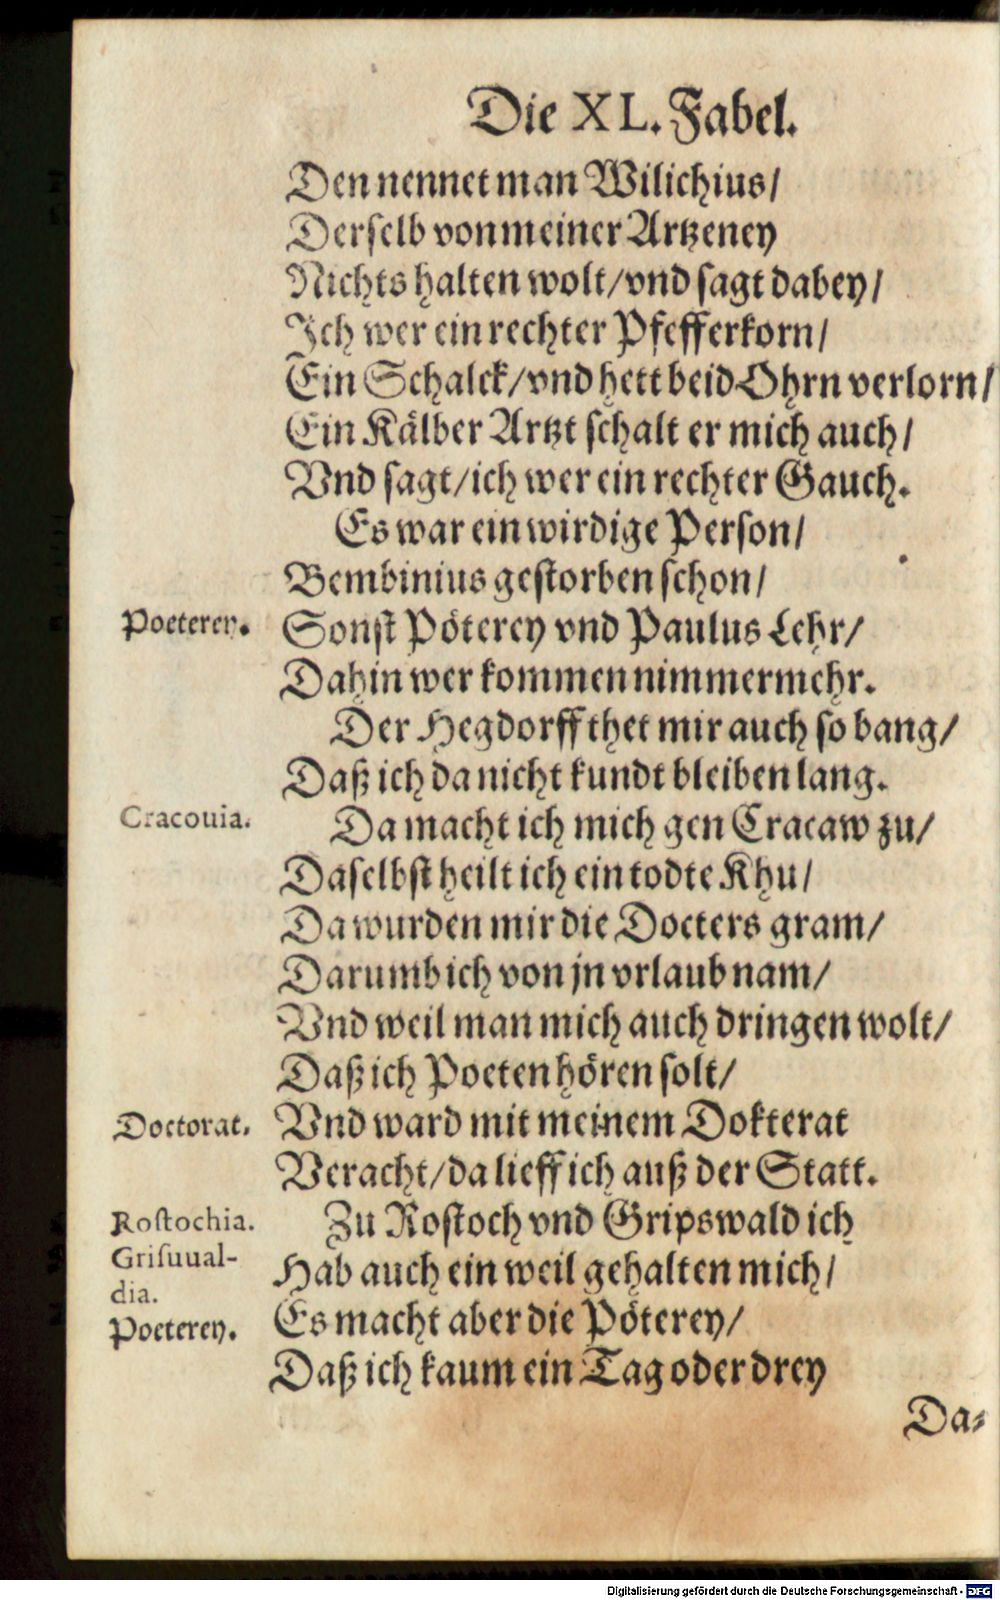 Die XL. Fabel.
Den nennet man Wilichius/
Derselb von meiner Artzeney
Nichts halten wolt/vnd sagt dabey/
Ich wer ein rechter Pfefferkorn/
Ein Schalck/vnd hett beid Ohrn verlorn/
Ein Kälber Artzt schalt er mich auch/
Vnd sagt/ich wer ein rechter Gauch.
Es war ein wirdige Person/
Bembinius gestorben schon/
Poeterey. Sonst Pöterey vnd Paulus Lehr/
Dahin wer kommen nimmermehr.
Der Hegdorff thet mir auch so bang/
Daß ich da nicht kundt bleiben lang.
Cracouia. Da macht ich mich gen Cracaw zu/
Daselbst heilt ich ein todte Khu/
Da wurden mir die Docters gram/
Darumb ich von jn vrlaub nam/
Vnd weil man mich auch dringen wolt/
Daß ich Poeten hören solt/
Doctorat. Vnd ward mit meinem Dokterat
Veracht/da lieff ich auß der Statt.
Rostochia. Zu Rostoch vnd Gripswald ich
Grisuual-
dia. Hab auch ein weil gehalten mich/
Poeterey. Es macht aber die Pöterey/
Daß ich kaum ein Tag oder drey
Da-
Digitalisierung gefördert durch die Deutsche Forschungsgemeinschaft - DFG